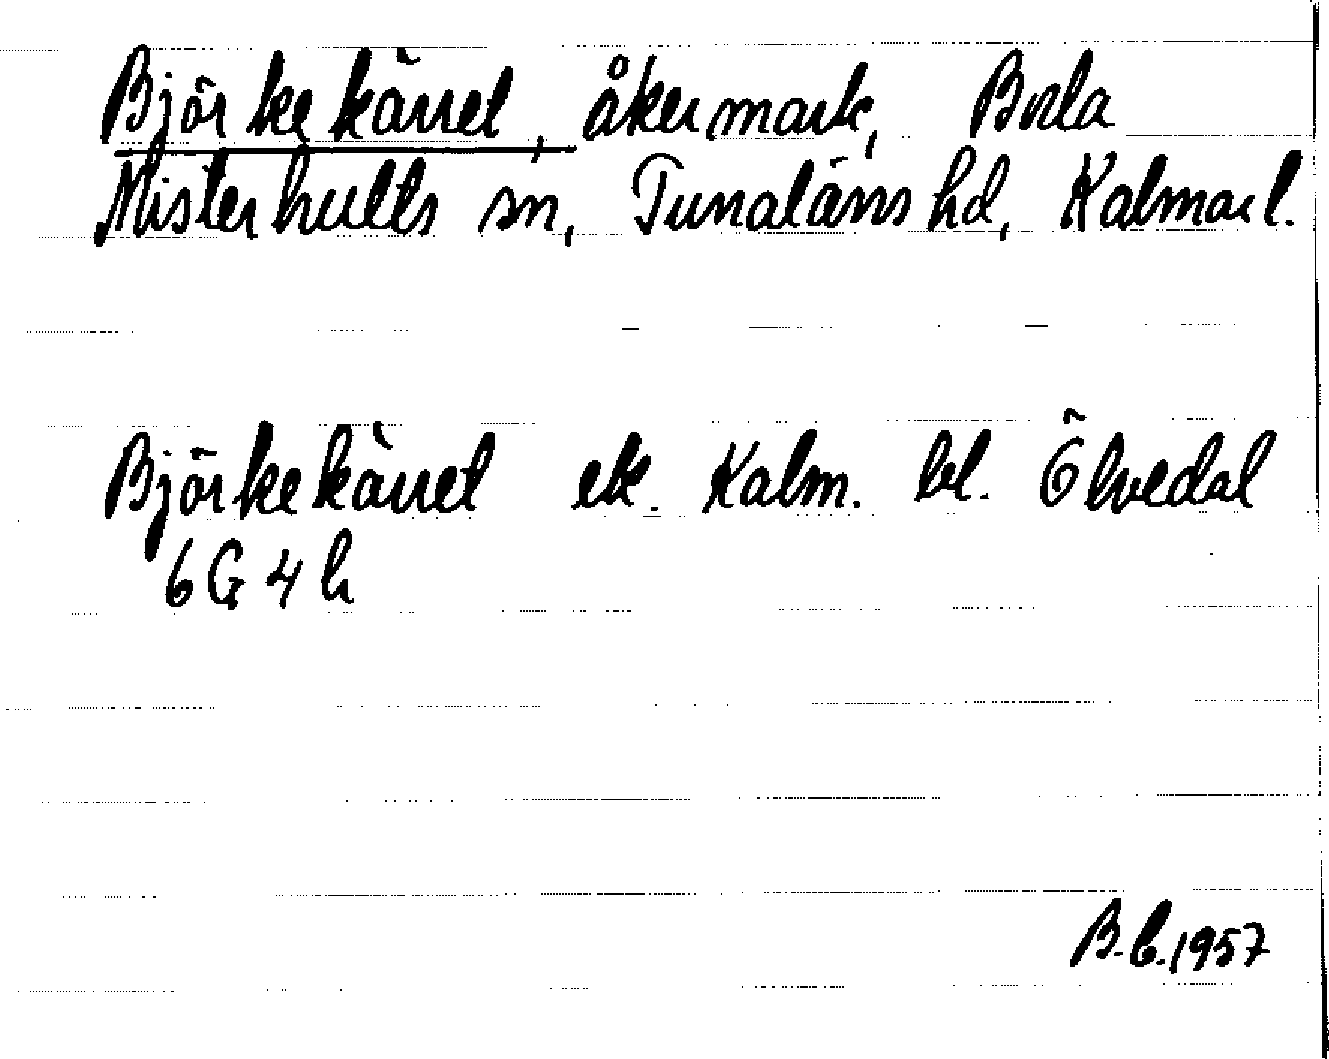 Björkekärret, åkermark, Boda
Misterhults sn, Tunaläns hd, Kalmar l.
Björkekärret ek. Kalm. bl. Ölvedal
6G4h
1957